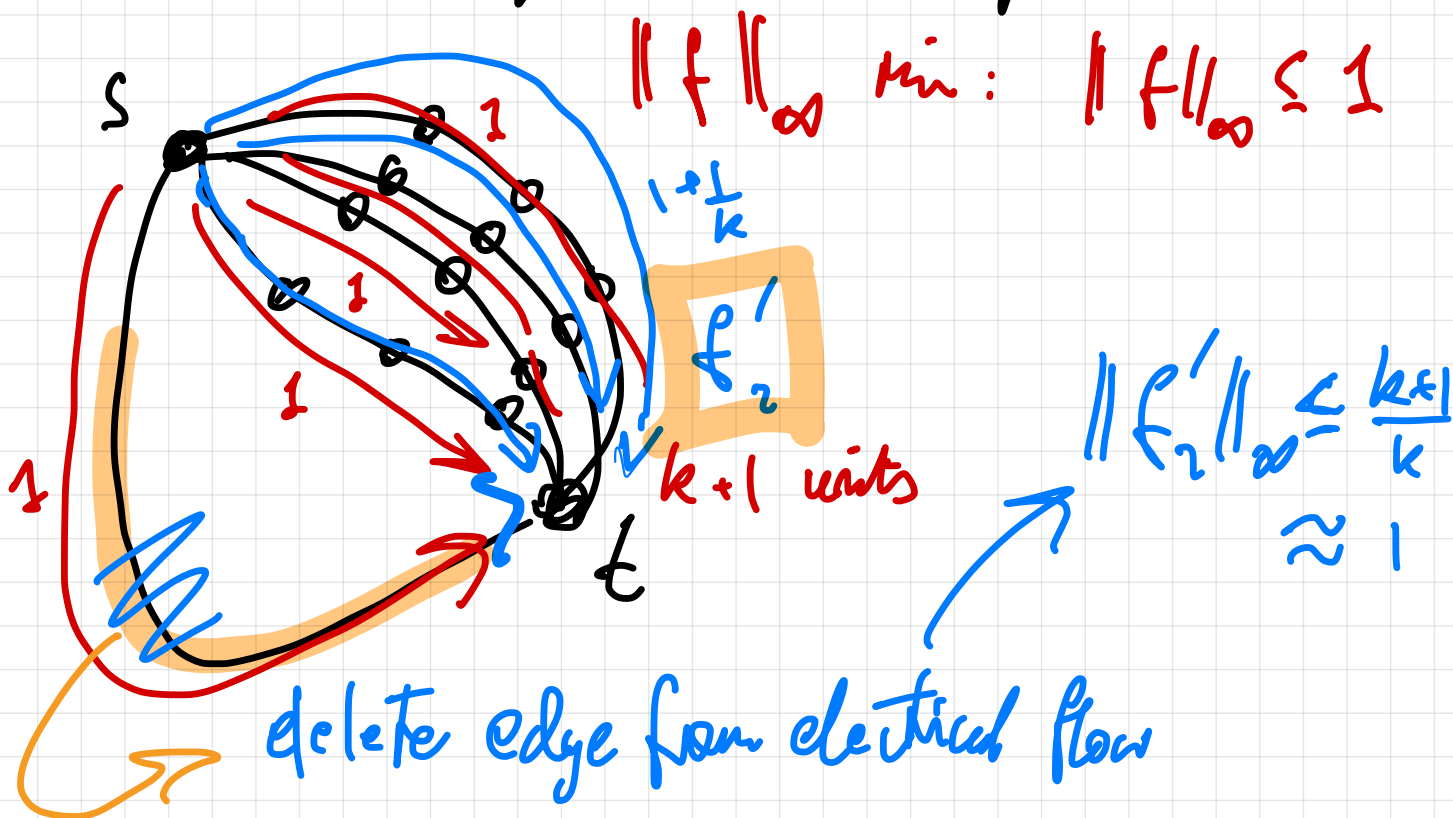 ‖f‖∞ min: ‖f‖∞ ≤ 1
s
1
1 + 1/k
1
1
1
f₂'
k+1 units
t
‖f₂'‖∞ ≤ (k+1)/k
≈ 1
delete edge from electrical flow